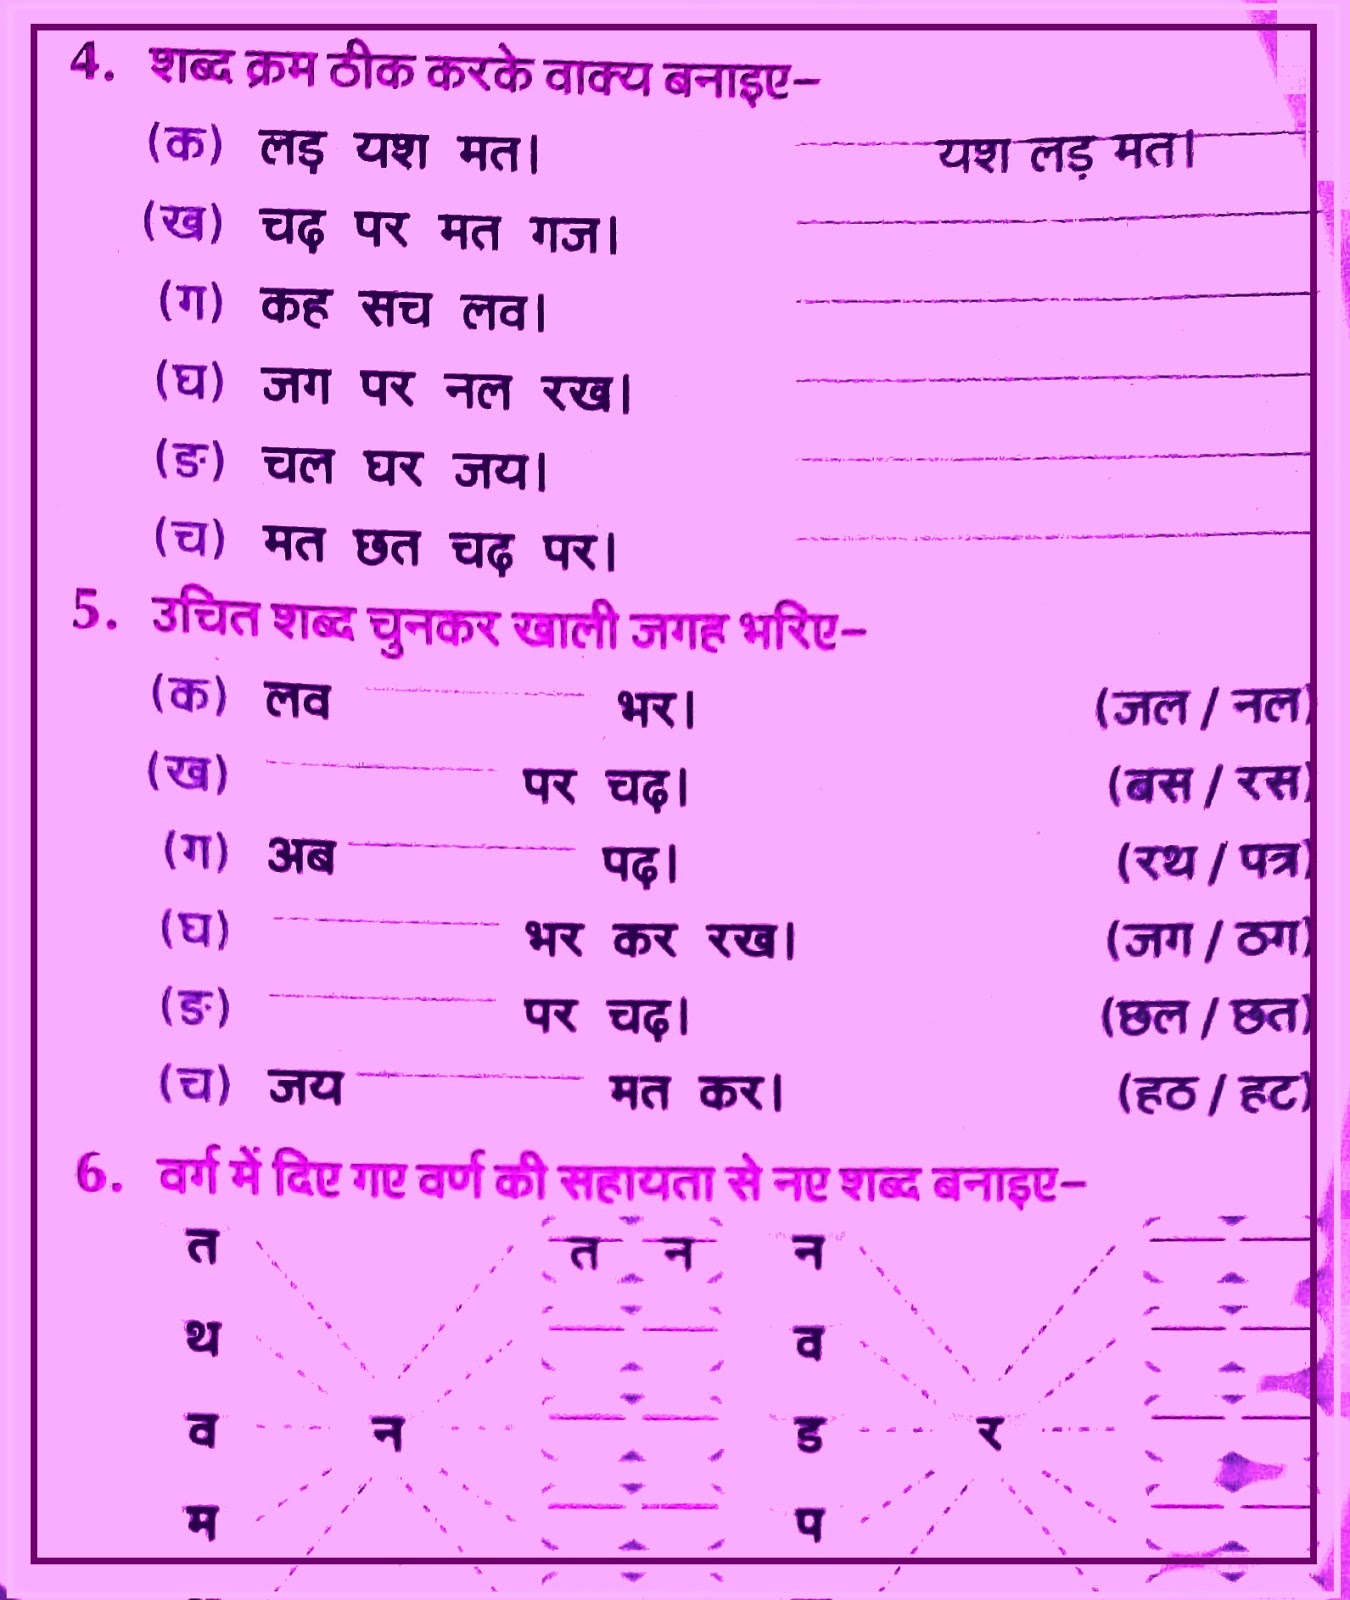 4. शब्द क्रम ठीक करके वाक्य बनाइए–
(क) लड़ यश मत। यश लड़ मत।
(ख) चढ़ पर मत गज।
(ग) कह सच लव।
(घ) जग पर नल रख।
(ङ) चल घर जय।
(च) मत छत चढ़ पर।
5. उचित शब्द चुनकर खाली जगह भरिए–
(क) लव भर। (जल / नल)
(ख) पर चढ़। (बस / रस)
(ग) अब पढ़। (रथ / पत्र)
(घ) भर कर रख। (जग / ठग)
(ङ) पर चढ़। (छल / छत)
(च) जय मत कर। (हठ / हट)
6. वर्ग में दिए गए वर्ण की सहायता से नए शब्द बनाइए–
त त न न
थ व
व न ड र
म प